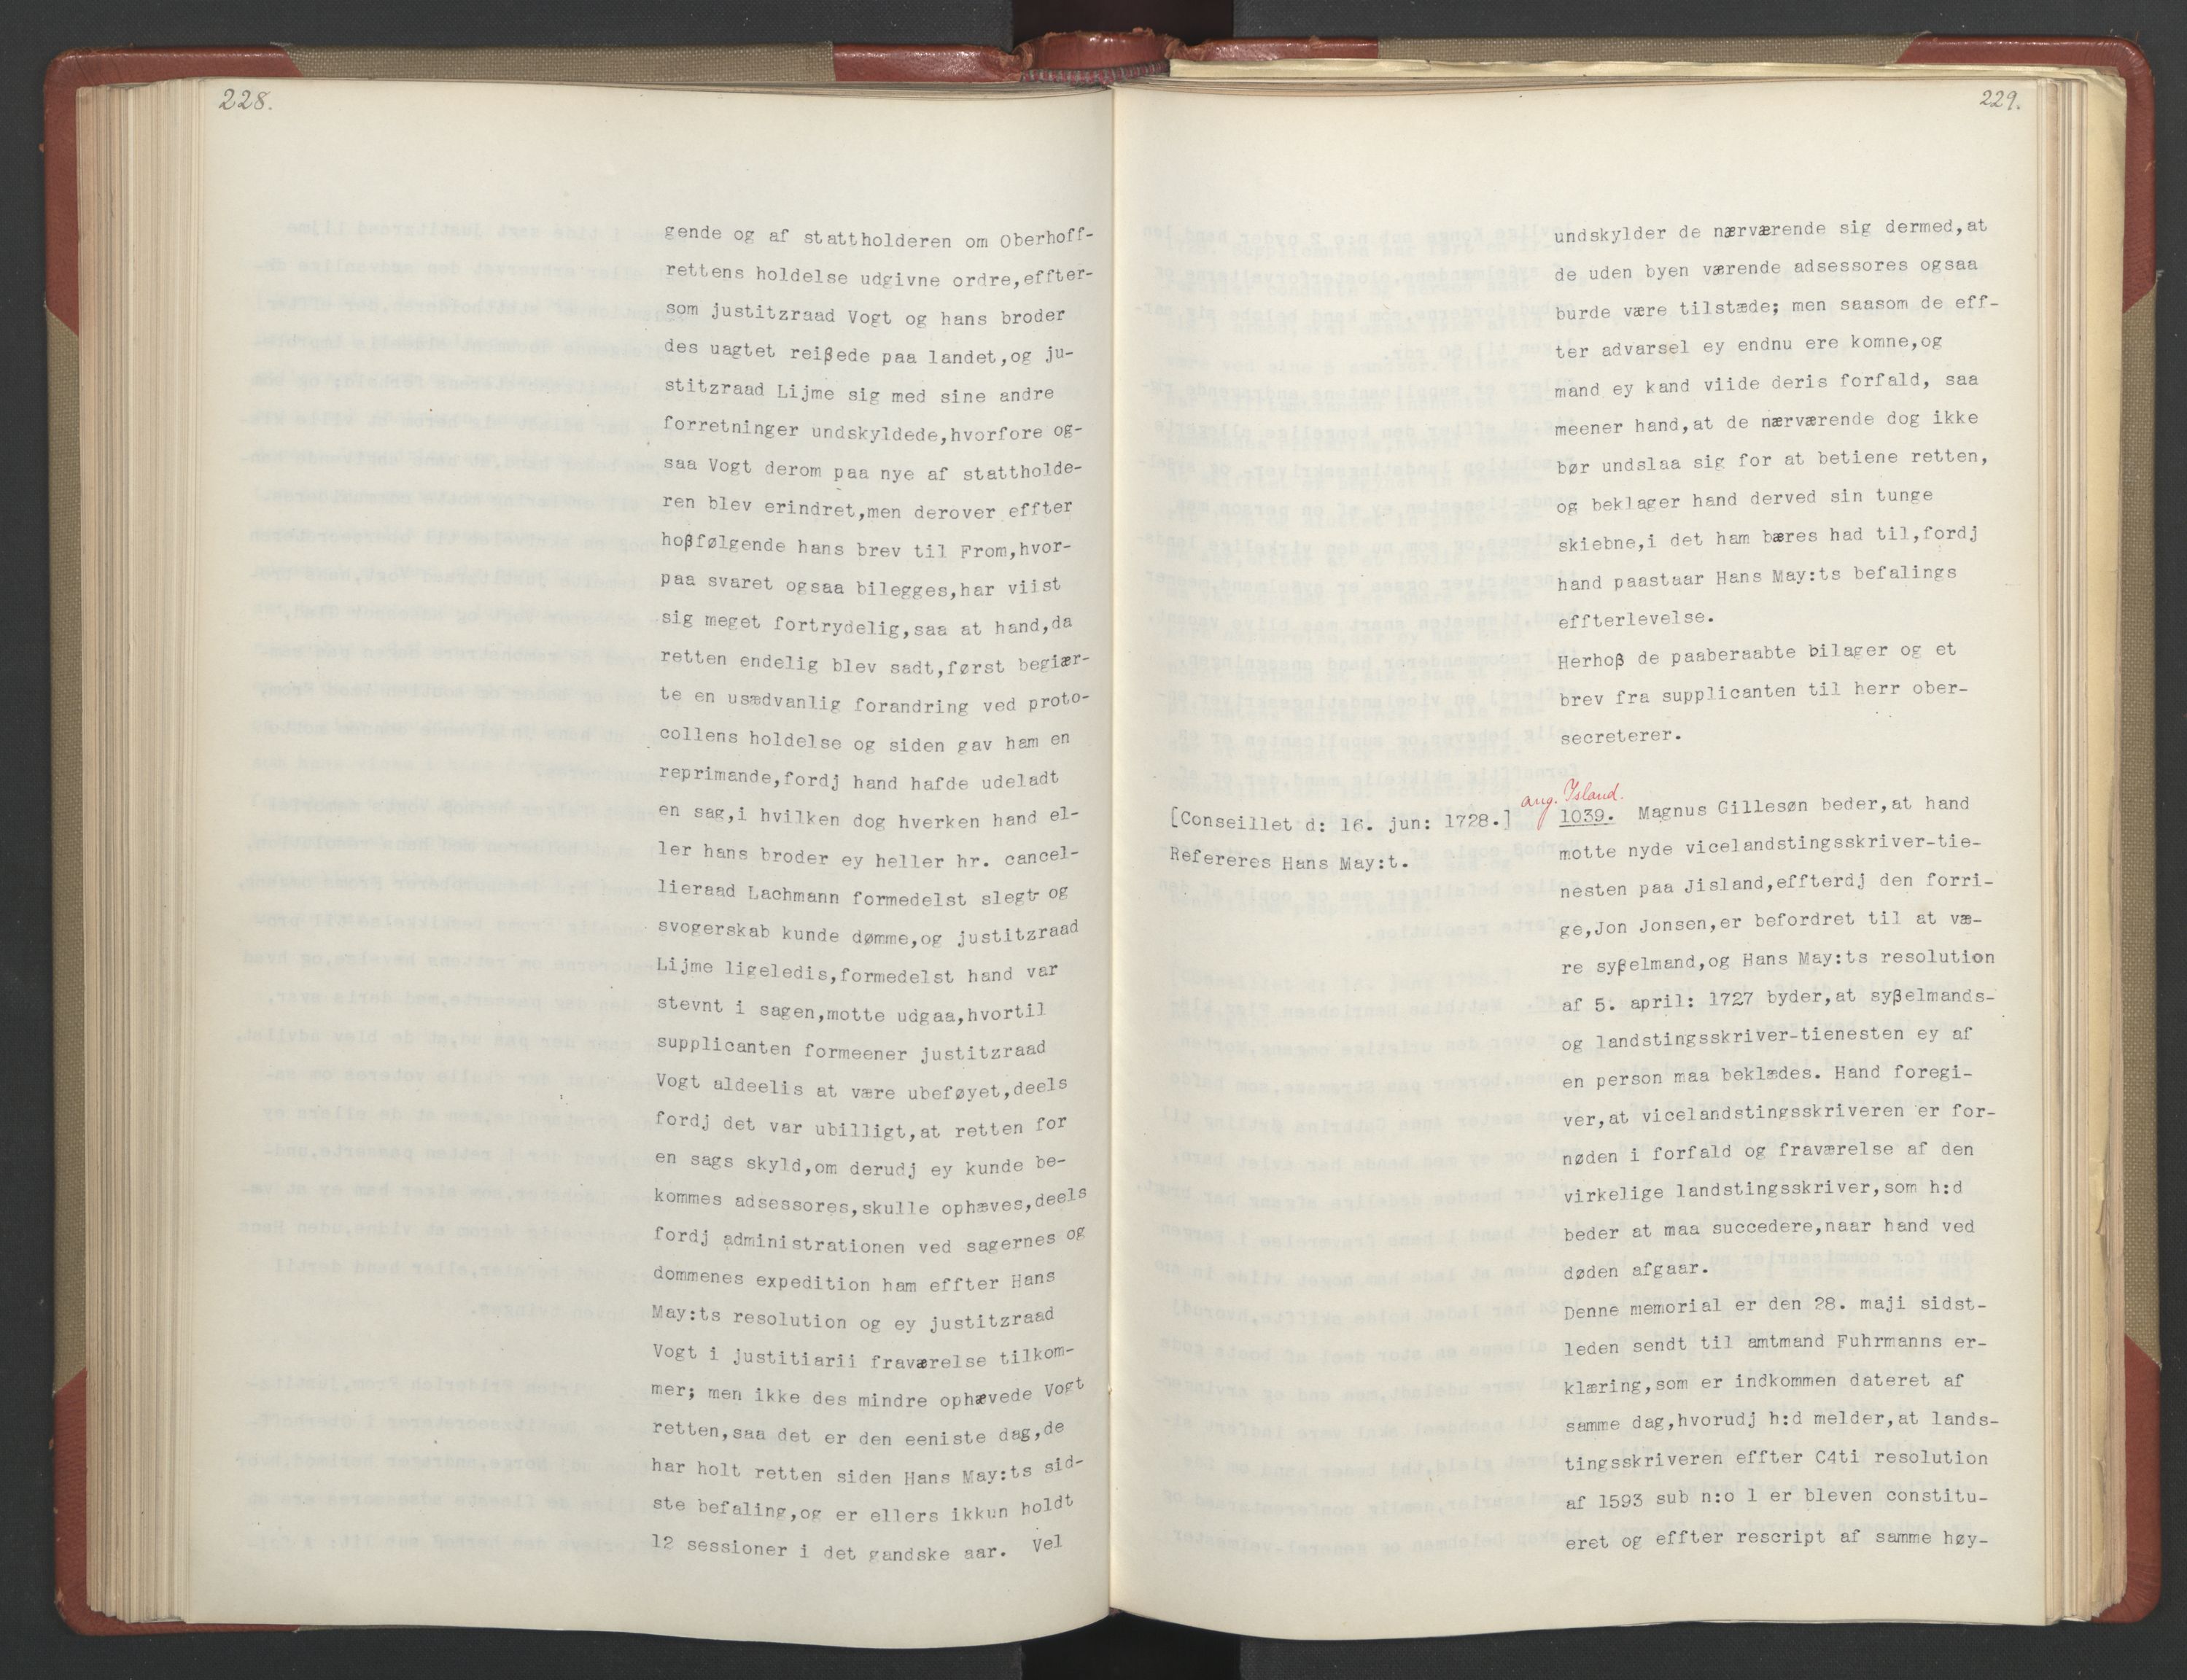 228.
gende og af stattholderen om Oberhoff-
rettens holdelse udgivne ordre,effter-
som justitzraad Vogt og hans broder
des uagtet reiβede paa landet,og ju-
stitzraad Lijme sig med sine andre
forretninger undskyldede,hvorfore og-
saa Vogt derom paa nye af stattholde-
ren blev erindret,men derover effter
hoβfølgende hans brev til From,hvor-
paa svaret ogsaa bilegges,har viist
sig meget fortrydelig,saa at hand,da
retten endelig blev sadt,først begiær-
te en usædvanlig forandring ved proto-
collens holdelse og siden gav ham en
reprimande,fordj hand hafde udeladt
en sag,i hvilken dog hverken hand el-
ler hans broder ey heller hr. cancel-
lieraad Lachmann formedelst slegt- og
svogerskab kunde dømme,og justitzraad
Lijme ligeledis,formedelst hand var
stevnt i sagen,motte udgaa,hvortil
supplicanten formeener justitzraad
Vogt aldeelis at være ubeføyet,deels
fordj det var ubilligt,at retten for
en sags skyld,om derudj ey kunde be-
kommes adsessores,skulle ophæves,deels
fordj administrationen ved sagernes og
dommenes expedition ham effter Hans
May:ts resolution og ey justitzraad
Vogt i justitiarii fraværelse tilkom-
mer; men ikke des mindre ophævede Vogt
retten,saa det er den eeniste dag,de
har holt retten siden Hans May:ts sid-
ste befaling,og er ellers ikkun holdt
12 sessioner i det gandske aar. Vel
229.
undskylder de nærværende sig dermed,at
de uden byen værende adsessores ogsaa
burde være tilstæde; men saasom de eff-
ter advarsel ey endnu ere komne,og
mand ey kand viide deris forfald, saa
meener hand,at de nærværende dog ikke
bør undslaa sig for at betiene retten,
og beklager hand derved sin tunge
skiebne,i det ham bæres had til,fordj
hand paastaar Hans May:ts befalings
effterlevelse.
Herhoβ de paaberaabte bilager og et
brev fra supplicanten til herr ober-
secreterer.
ang. Island.
[Conseillet d: 16. jun: 1728.]
Refereres Hans May:t.
1039. Magnus Gillesøn beder,at hand
motte nyde vicelandstingsskriver-tie-
nesten paa Jisland,effterdj den forri-
ge,Jon Jonsen,er befordret til at væ-
re syβelmand,og Hans May:ts resolution
af 5. april: 1727 byder,at syβelmands-
og landstingsskriver-tienesten ey af
en person maa beklædes. Hand foregi-
ver,at vicelandstingsskriveren er for-
nøden i forfald og fraværelse af den
virkelige landstingsskriver,som h:d
beder at maa succedere,naar hand ved
døden afgaar.
Denne memorial er den 28. maji sidst-
leden sendt til amtmand Fuhrmanns er-
klæring,som er indkommen dateret af
samme dag,hvorudj h:d melder,at lands-
tingsskriveren effter C4ti resolution
af 1593 sub n:o 1 er bleven constitu-
eret og effter rescript af samme høy-